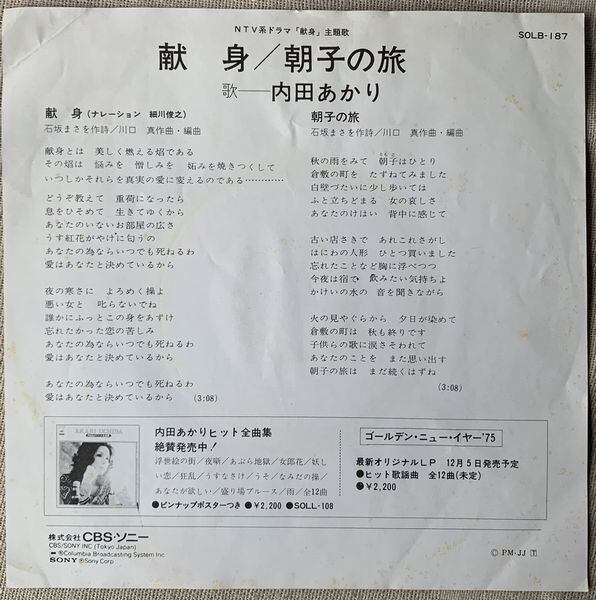 NTV系ドラマ「献身」主題歌
SOLB-187
献 身／朝子の旅
歌──内田あかり
献 身（ナレーション 細川俊之）
石坂まさを作詩／川口 真作曲・編曲
献身とは 美しく燃える焰である
その焰は 悩みを 憎しみを 妬みを焼きつくして
いつしかそれらを真実の愛に変えるのである…………
どうぞ教えて 重荷になったら
息をひそめて 生きてゆくから
あなたのいないお部屋の広さ
うす紅花がやけに匂うの
あなたの為ならいつでも死ねるわ
愛はあなたと決めているから
夜の寒さに よろめく操よ
悪い女と 叱らないでね
誰かにふっとこの身をあずけ
忘れたかった恋の苦しみ
あなたの為ならいつでも死ねるわ
愛はあなたと決めているから
あなたの為ならいつでも死ねるわ
愛はあなたと決めているから (3:08)
朝子の旅
石坂まさを作詩／川口 真作曲・編曲
秋の雨をみて 朝子はひとり
倉敷の町を たずねてみました
白壁づたいに少し歩いては
ふと立ちどまる 女の哀しさ
あなたのけはい 背中に感じて
古い店さきで あれこれさがし
はにわの人形 ひとつ買いました
忘れたことなど胸に浮べつつ
今夜は宿で 飲みたい気持ちよ
かけいの水の 音を聞きながら
火の見やぐらから 夕日が染めて
倉敷の町は 秋も終りです
子供らの歌に涙さそわれて
あなたのことを また思い出す
朝子の旅は まだ続くはずね
(3:08)
AKARI UCHIDA
内田あかりヒット全曲集
絶賛発売中！
浮世絵の街／夜噺／あぶら地獄／女郎花／妖し
い恋／狂乱／うすなさけ／うそ／なみだの操／
あなたが欲しい／盛り場ブルース／雨／全12曲
●ピンナップポスターつき ●￥2,200 ●SOLL-108
ゴールデン・ニュー・イヤー'75
最新オリジナルLP 12月5日発売予定
●ヒット歌謡曲 全12曲(未定)
●￥2,200
株式会社 CBS・ソニー
CBS/SONY INC (Tokyo Japan)
®Columbia Broadcasting System Inc
SONY ®Sony Corp
© PM・JJ T